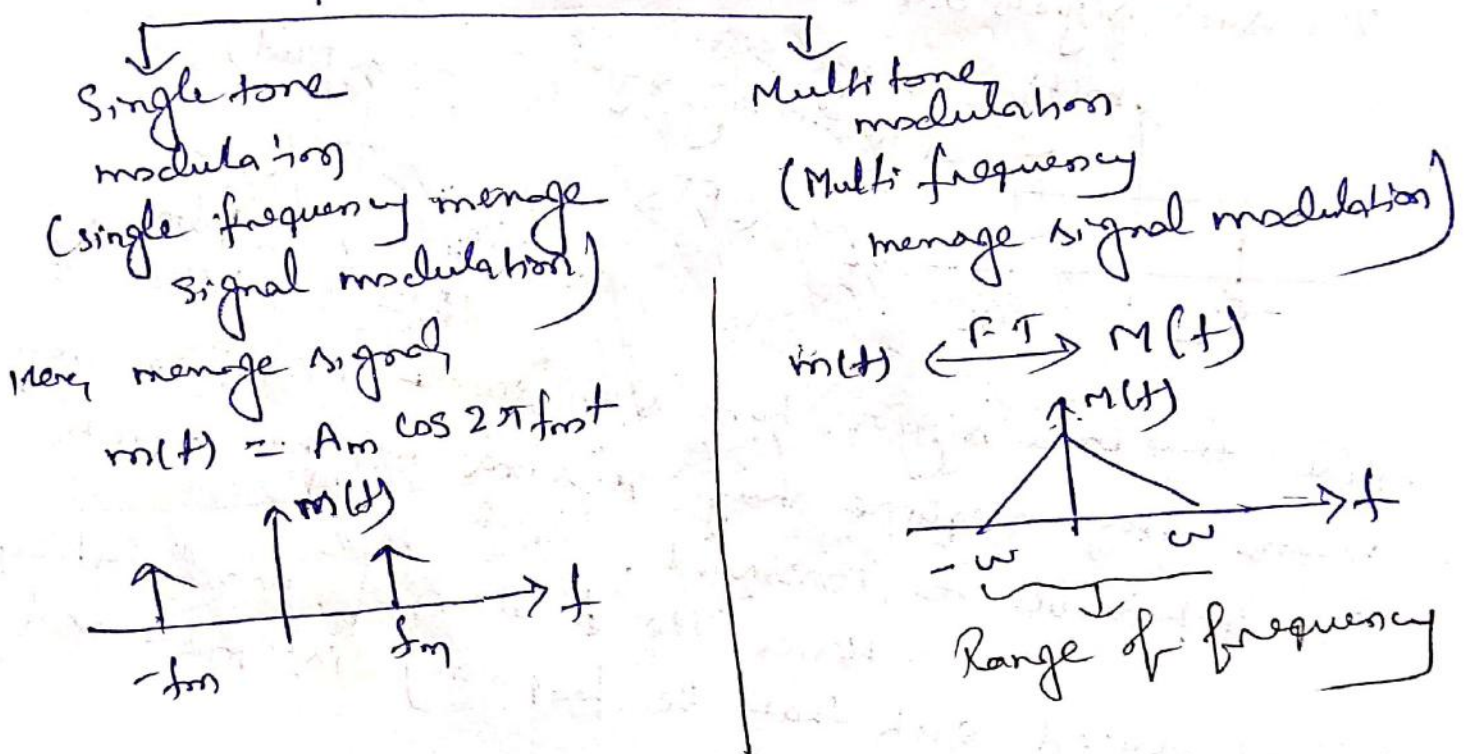 Single tone
modulation
(single frequency message
signal modulation)
Here, message signal,
m(t) = Am cos 2π fmt
m(f)
-fm
fm
f
Multi tone
modulation
(Multi frequency
message signal modulation)
m(t) ⟷ F.T M(f)
M(f)
-w
w
f
Range of frequency